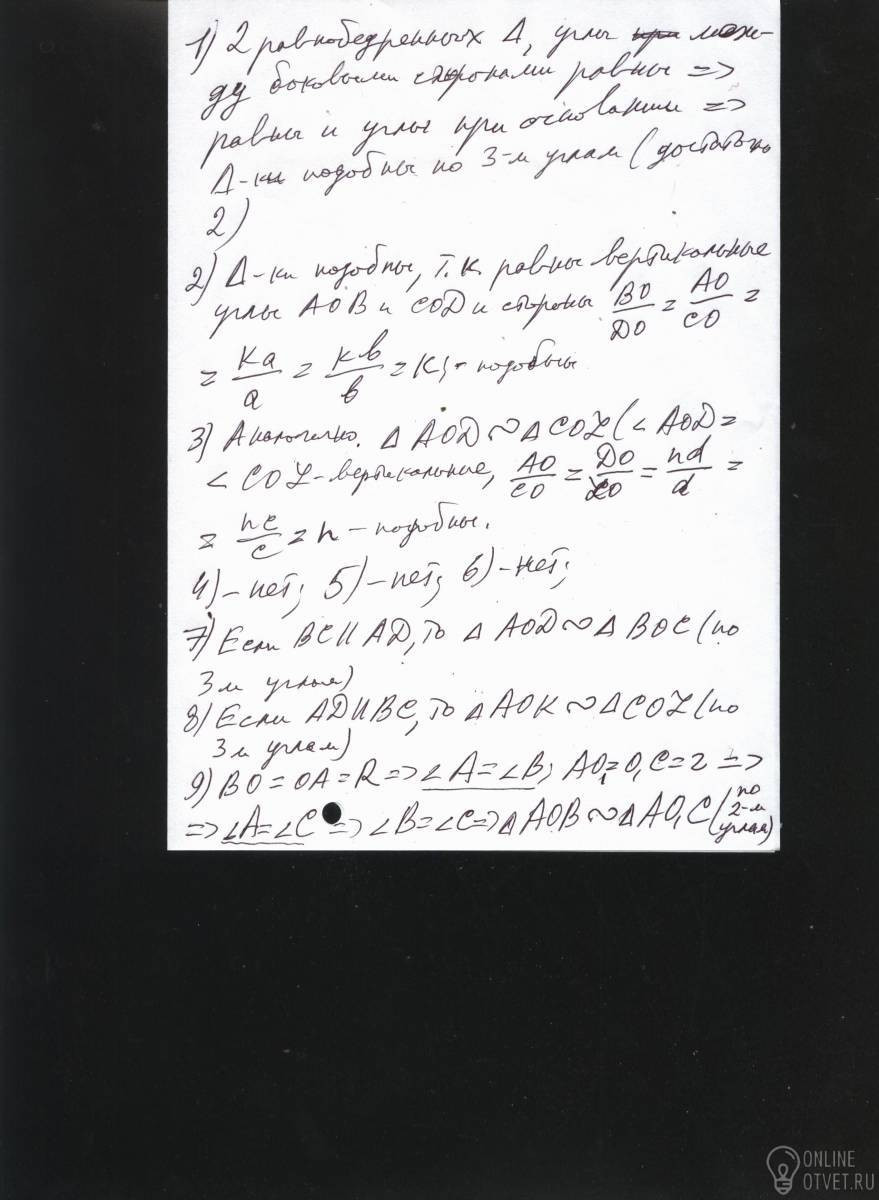 1) 2 равнобедренных Δ, углы меж-
ду боковыми сторонами равны =>
равны и углы при основании =>
Δ-ки подобны по 3-м углам (достаточно
2)
2) Δ-ки подобны, т.к. равны вертикальные
углы AOB и COD и стороны BO/DO = AO/CO =
= ka/a = kb/b = k, - подобны
3) Аналогично. Δ AOD ~ Δ COL (< AOD =
< COL - вертикальные, AO/CO = DO/LO = nd/d =
= nc/c = n - подобны.
4) - нет; 5) - нет; 6) - нет;
7) Если BC || AD, то Δ AOD ~ Δ BOC (по
3м углам)
8) Если AD || BC, то Δ AOK ~ Δ COL (по
3м углам)
9) BO = OA = R => ∠A = ∠B; AO₁ = O₁C = r =>
=> ∠A = ∠C => ∠B = ∠C => Δ AOB ~ Δ AO₁C (по 2-м углам)
ONLINE
OTVET.RU